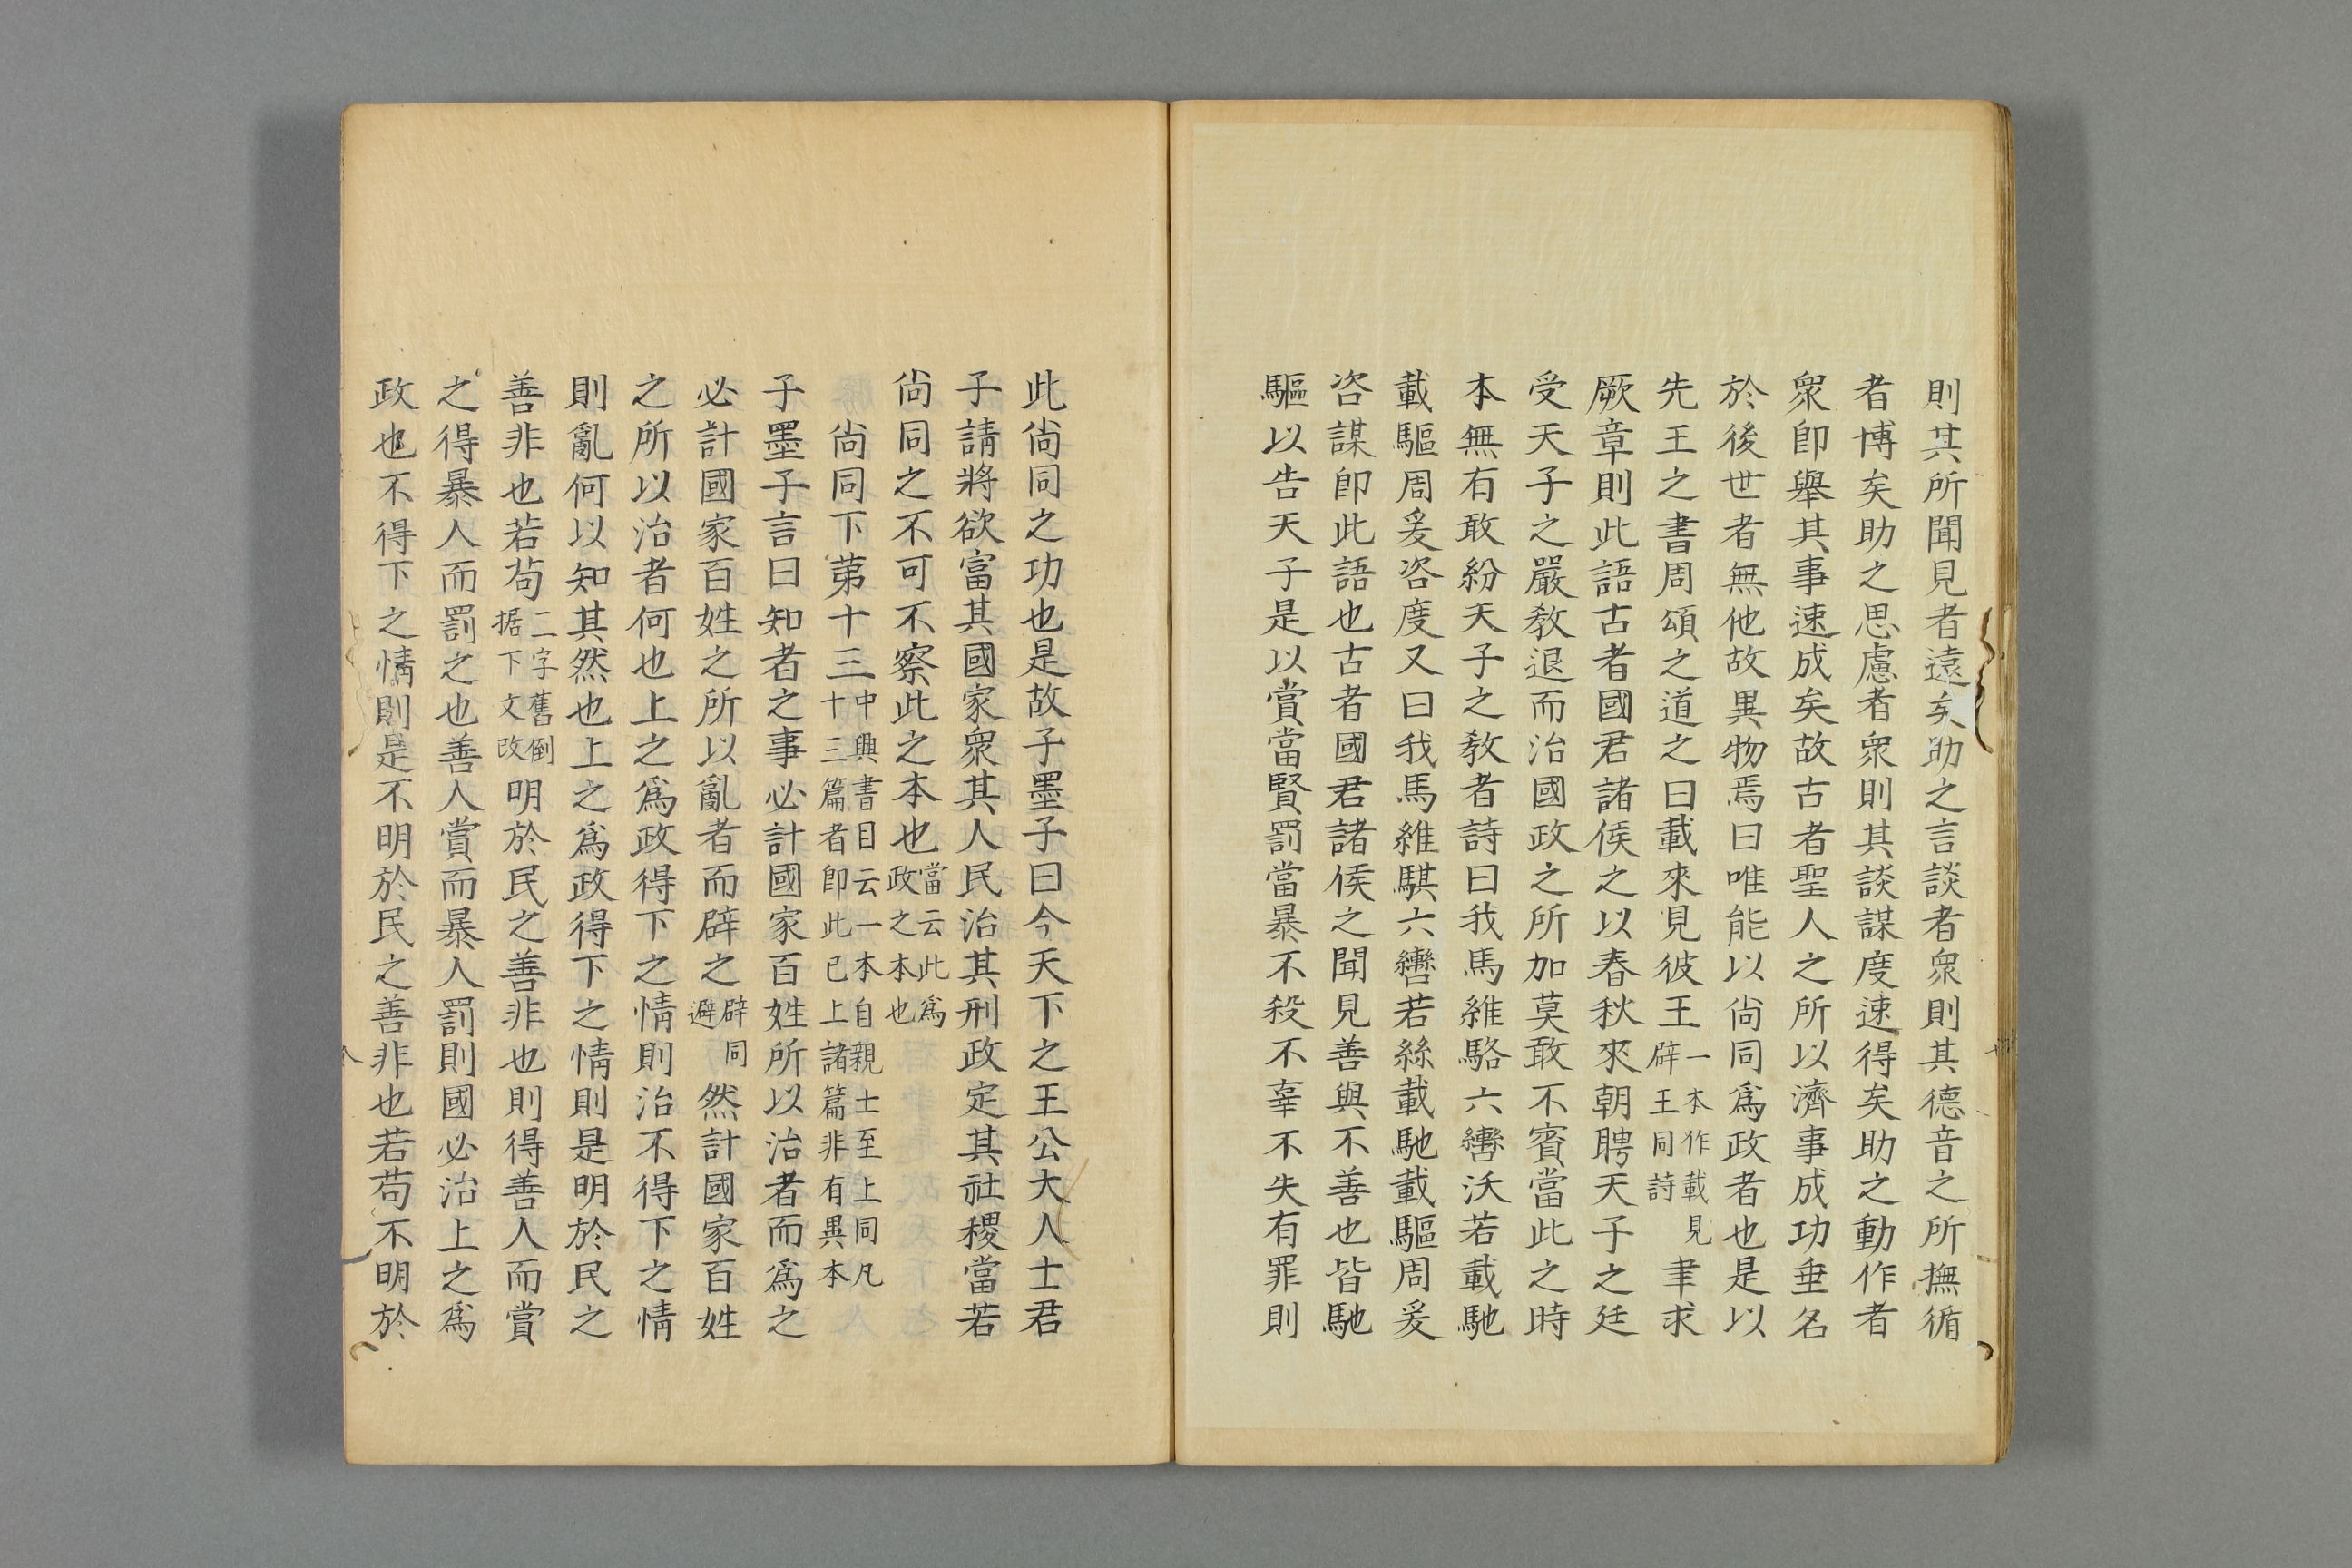 則其所聞見者遠矣助之言談者衆則其德音之所撫循
者博矣助之思慮者衆則其談謀度速得矣助之動作者
衆即舉其事速成矣故古者聖人之所以濟事成功垂名
於後世者無他故異物焉曰唯能以尙同爲政者也是以
先王之書周頌之道之曰載來見彼王一本作載見辟王同詩聿求
厥章則此語古者國君諸侯之以春秋來朝聘天子之廷
受天子之嚴教退而治國政之所加莫敢不賓當此之時
本無有敢紛天子之教者詩曰我馬維駱六轡沃若載馳
載驅周爰咨度又曰我馬維騏六轡若絲載馳載驅周爰
咨謀即此語也古者國君諸侯之聞見善與不善也皆馳
驅以告天子是以賞當賢罰當暴不殺不辜不失有罪則
此尙同之功也是故子墨子曰今天下之王公大人士君
子請將欲富其國家衆其人民治其刑政定其社稷當若
尙同之不可不察此之本也當云此爲政之本也
尙同下第十三中興書目云一本自親士至上同凡十三篇者即此已上諸篇非有異本
子墨子言曰知者之事必計國家百姓所以治者而爲之
必計國家百姓之所以亂者而辟之辟同避然計國家百姓
之所以治者何也上之爲政得下之情則治不得下之情
則亂何以知其然也上之爲政得下之情則是明於民之
善非也若苟二字舊倒据下文改明於民之善非也則得善人而賞
之得暴人而罰之也善人賞而暴人罰則國必治上之爲
政也不得下之情則是不明於民之善非也若苟不明於